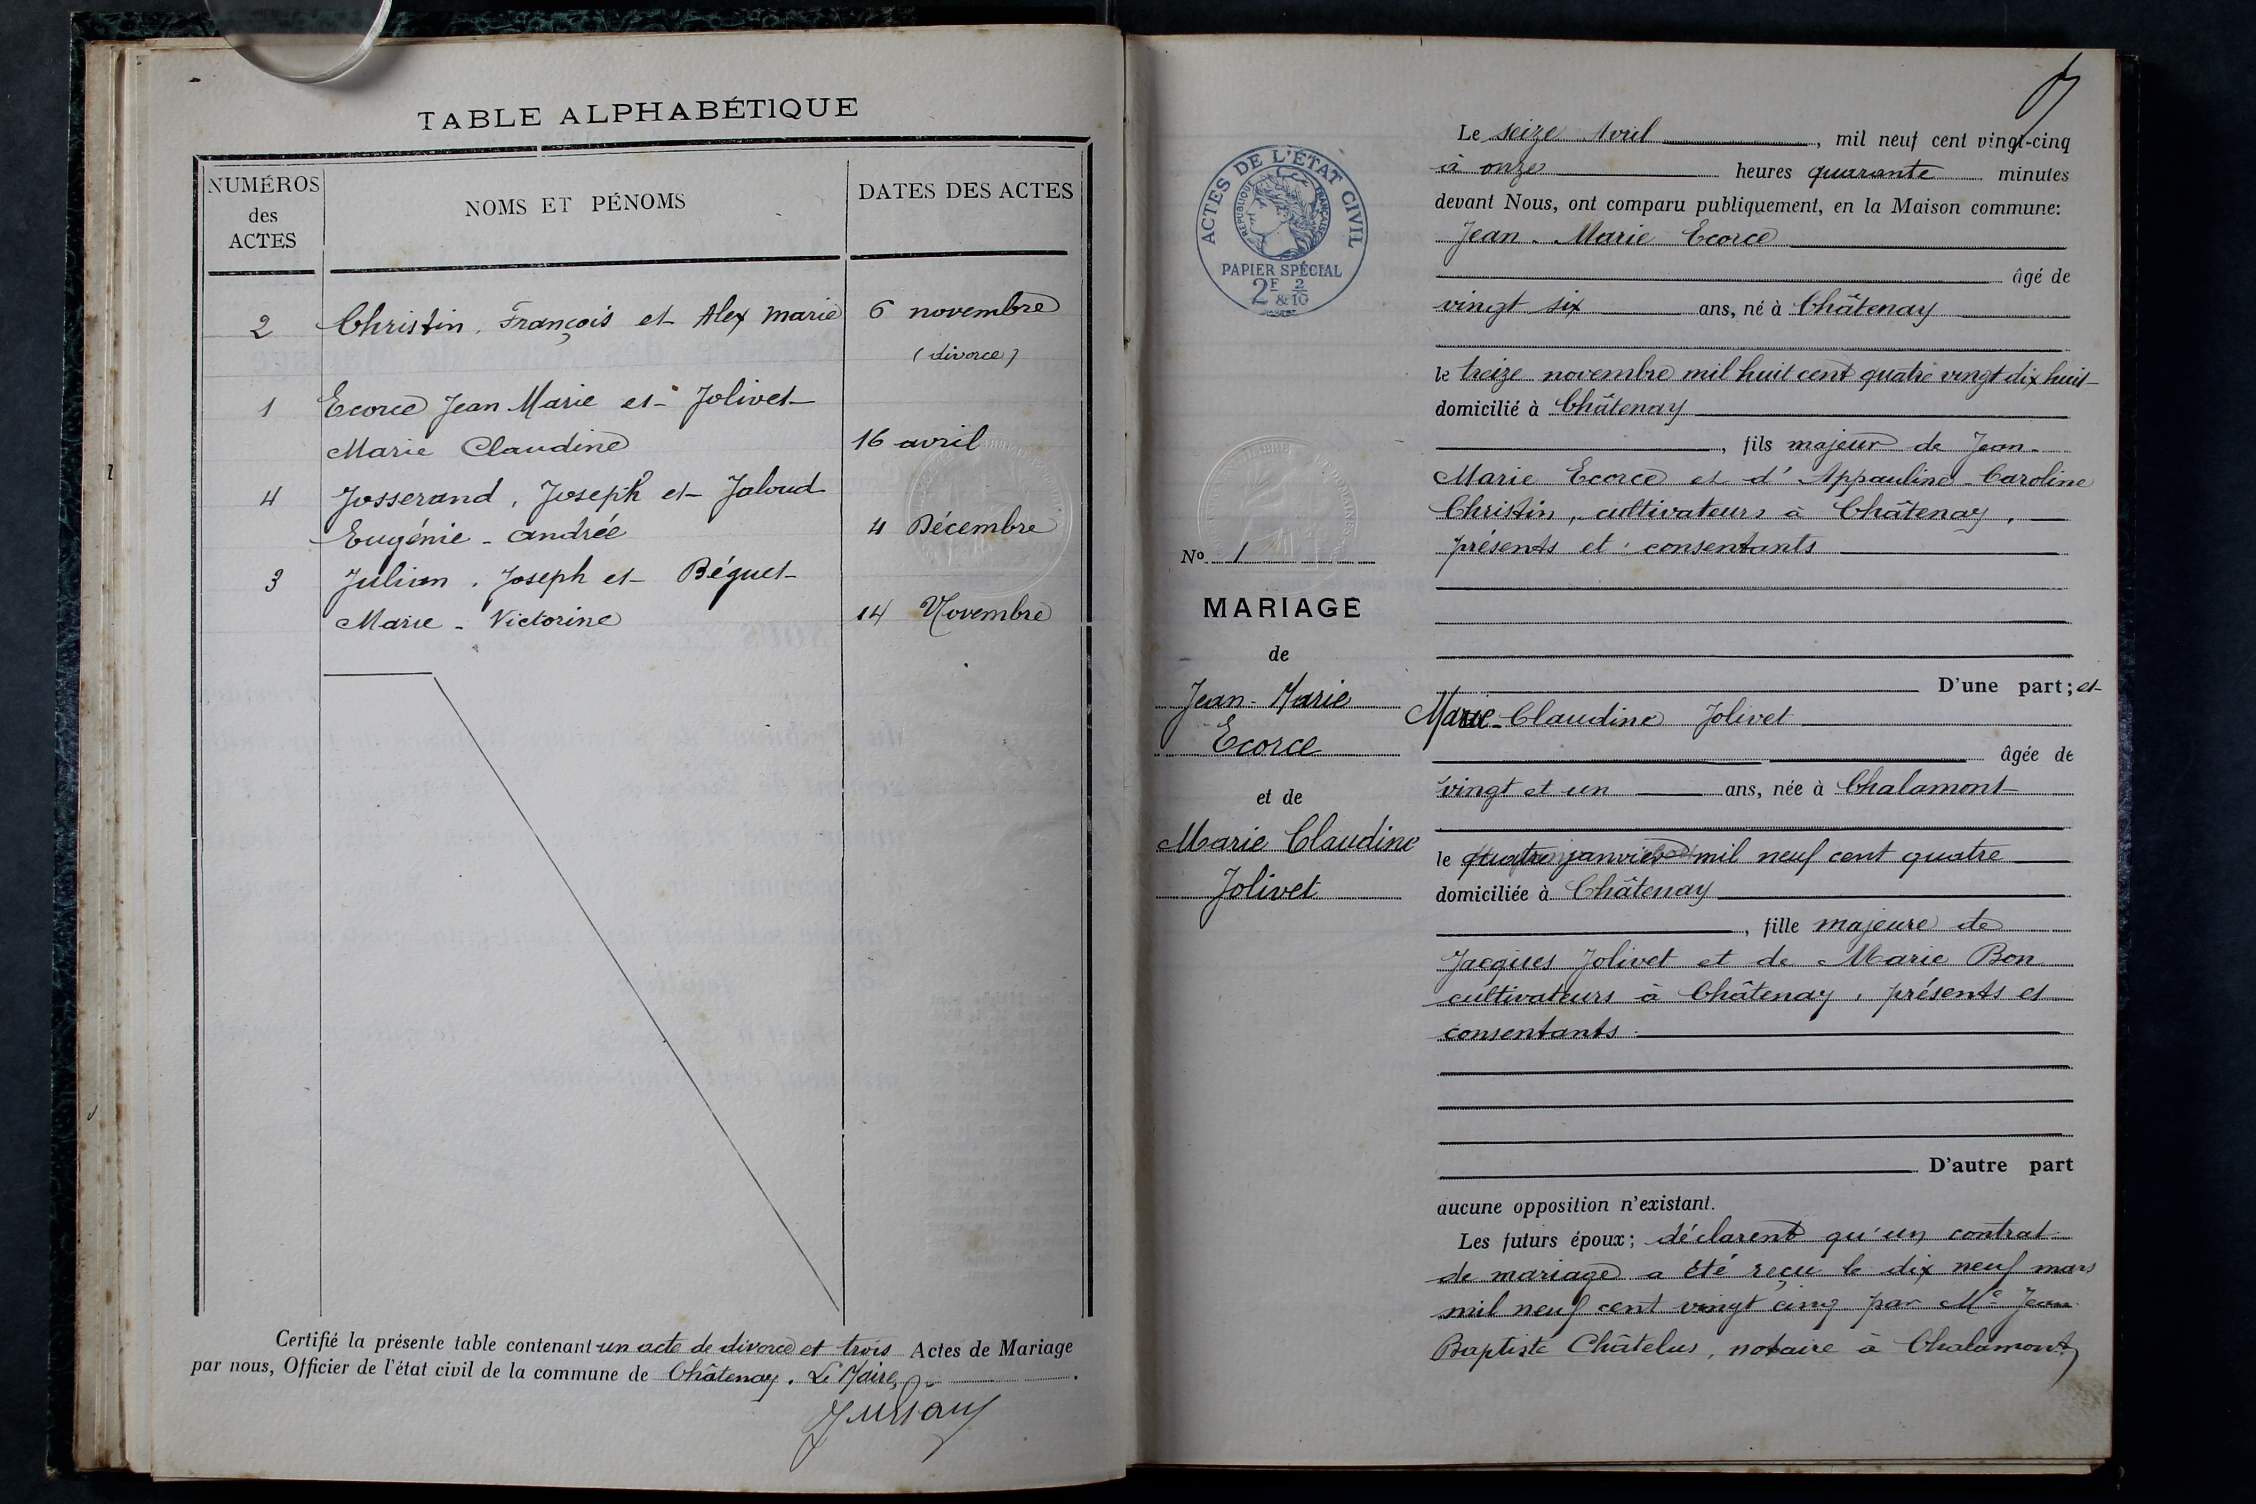 TABLE ALPHABÉTIQUE
NUMÉROS
des
ACTES
NOMS ET PÉNOMS
DATES DES ACTES
2 Christin, François et Alex Marie 6 novembre
(divorce)
1 Ecorce Jean Marie et Jolivet
Marie Claudine 16 avril
4 Josserand, Joseph et Jaloud
Eugénie - Andrée 4 Décembre
3 Julian, Joseph et Béguet
Marie - Victorine 14 Novembre
Certifié la présente table contenant un acte de divorce et trois Actes de Mariage
par nous, Officier de l'état civil de la commune de Châtenay. Le Maire,
ACTES DE L'ÉTAT CIVIL
RÉPUBLIQUE FRANÇAISE
PAPIER SPÉCIAL
2F & 2/10
No 1
MARIAGE
de
Jean-Marie
Ecorce
et de
Marie Claudine
Jolivet
Le seize Avril, mil neuf cent vingt-cinq
à onze heures quarante minutes
devant Nous, ont comparu publiquement, en la Maison commune:
Jean-Marie Ecorce
âgé de
vingt six ans, né à Châtenay
le treize novembre mil huit cent quatre vingt dix huit
domicilié à Châtenay
, fils majeur de Jean-
Marie Ecorce et d'Appauline-Caroline
Christin, cultivateurs à Châtenay,
présents et consentants
D'une part; et
Marie-Claudine Jolivet
âgée de
vingt et un ans, née à Chalamont
le quatre janvier mil neuf cent quatre
domiciliée à Châtenay
, fille majeure de
Jacques Jolivet et de Marie Bon
cultivateurs à Châtenay, présents et
consentants
D'autre part
aucune opposition n'existant.
Les futurs époux; déclarent qu'un contrat
de mariage a été reçu le dix neuf mars
mil neuf cent vingt cinq par Me Jean
Baptiste Châtelus, notaire à Chalamont,